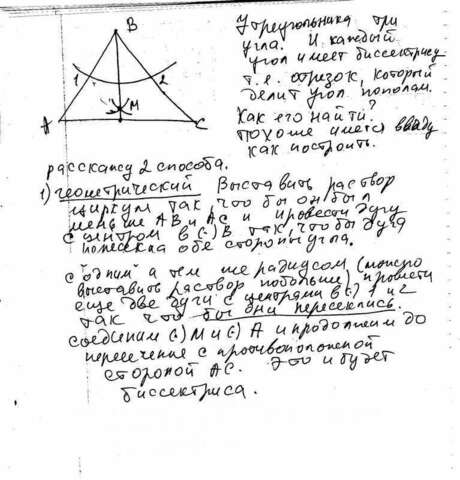 B
У треугольника три
угла. И каждый
угол имеет биссектрису
т.е. отрезок, который
делит угол пополам.
Как его найти?
Похоже имется ввиду
как построить.
1
2
M
A
C
расскажу 2 способа.
1) геометрический Выставить раствор
циркуля так, что бы он был
меньше AB и AC и провести дугу
с центром в (·) B так, что бы дуга
обе стороны угла.
с одним а тем же радиусом (можно
выставить раствор побольше) провести
еще две дуги с центрами в (·) 1 и 2
так что бы они пересеклись.
соединим (·) M и (·) A и продолжем до
пересечение с противоположной
стороной AC. Это и будет
биссектриса.